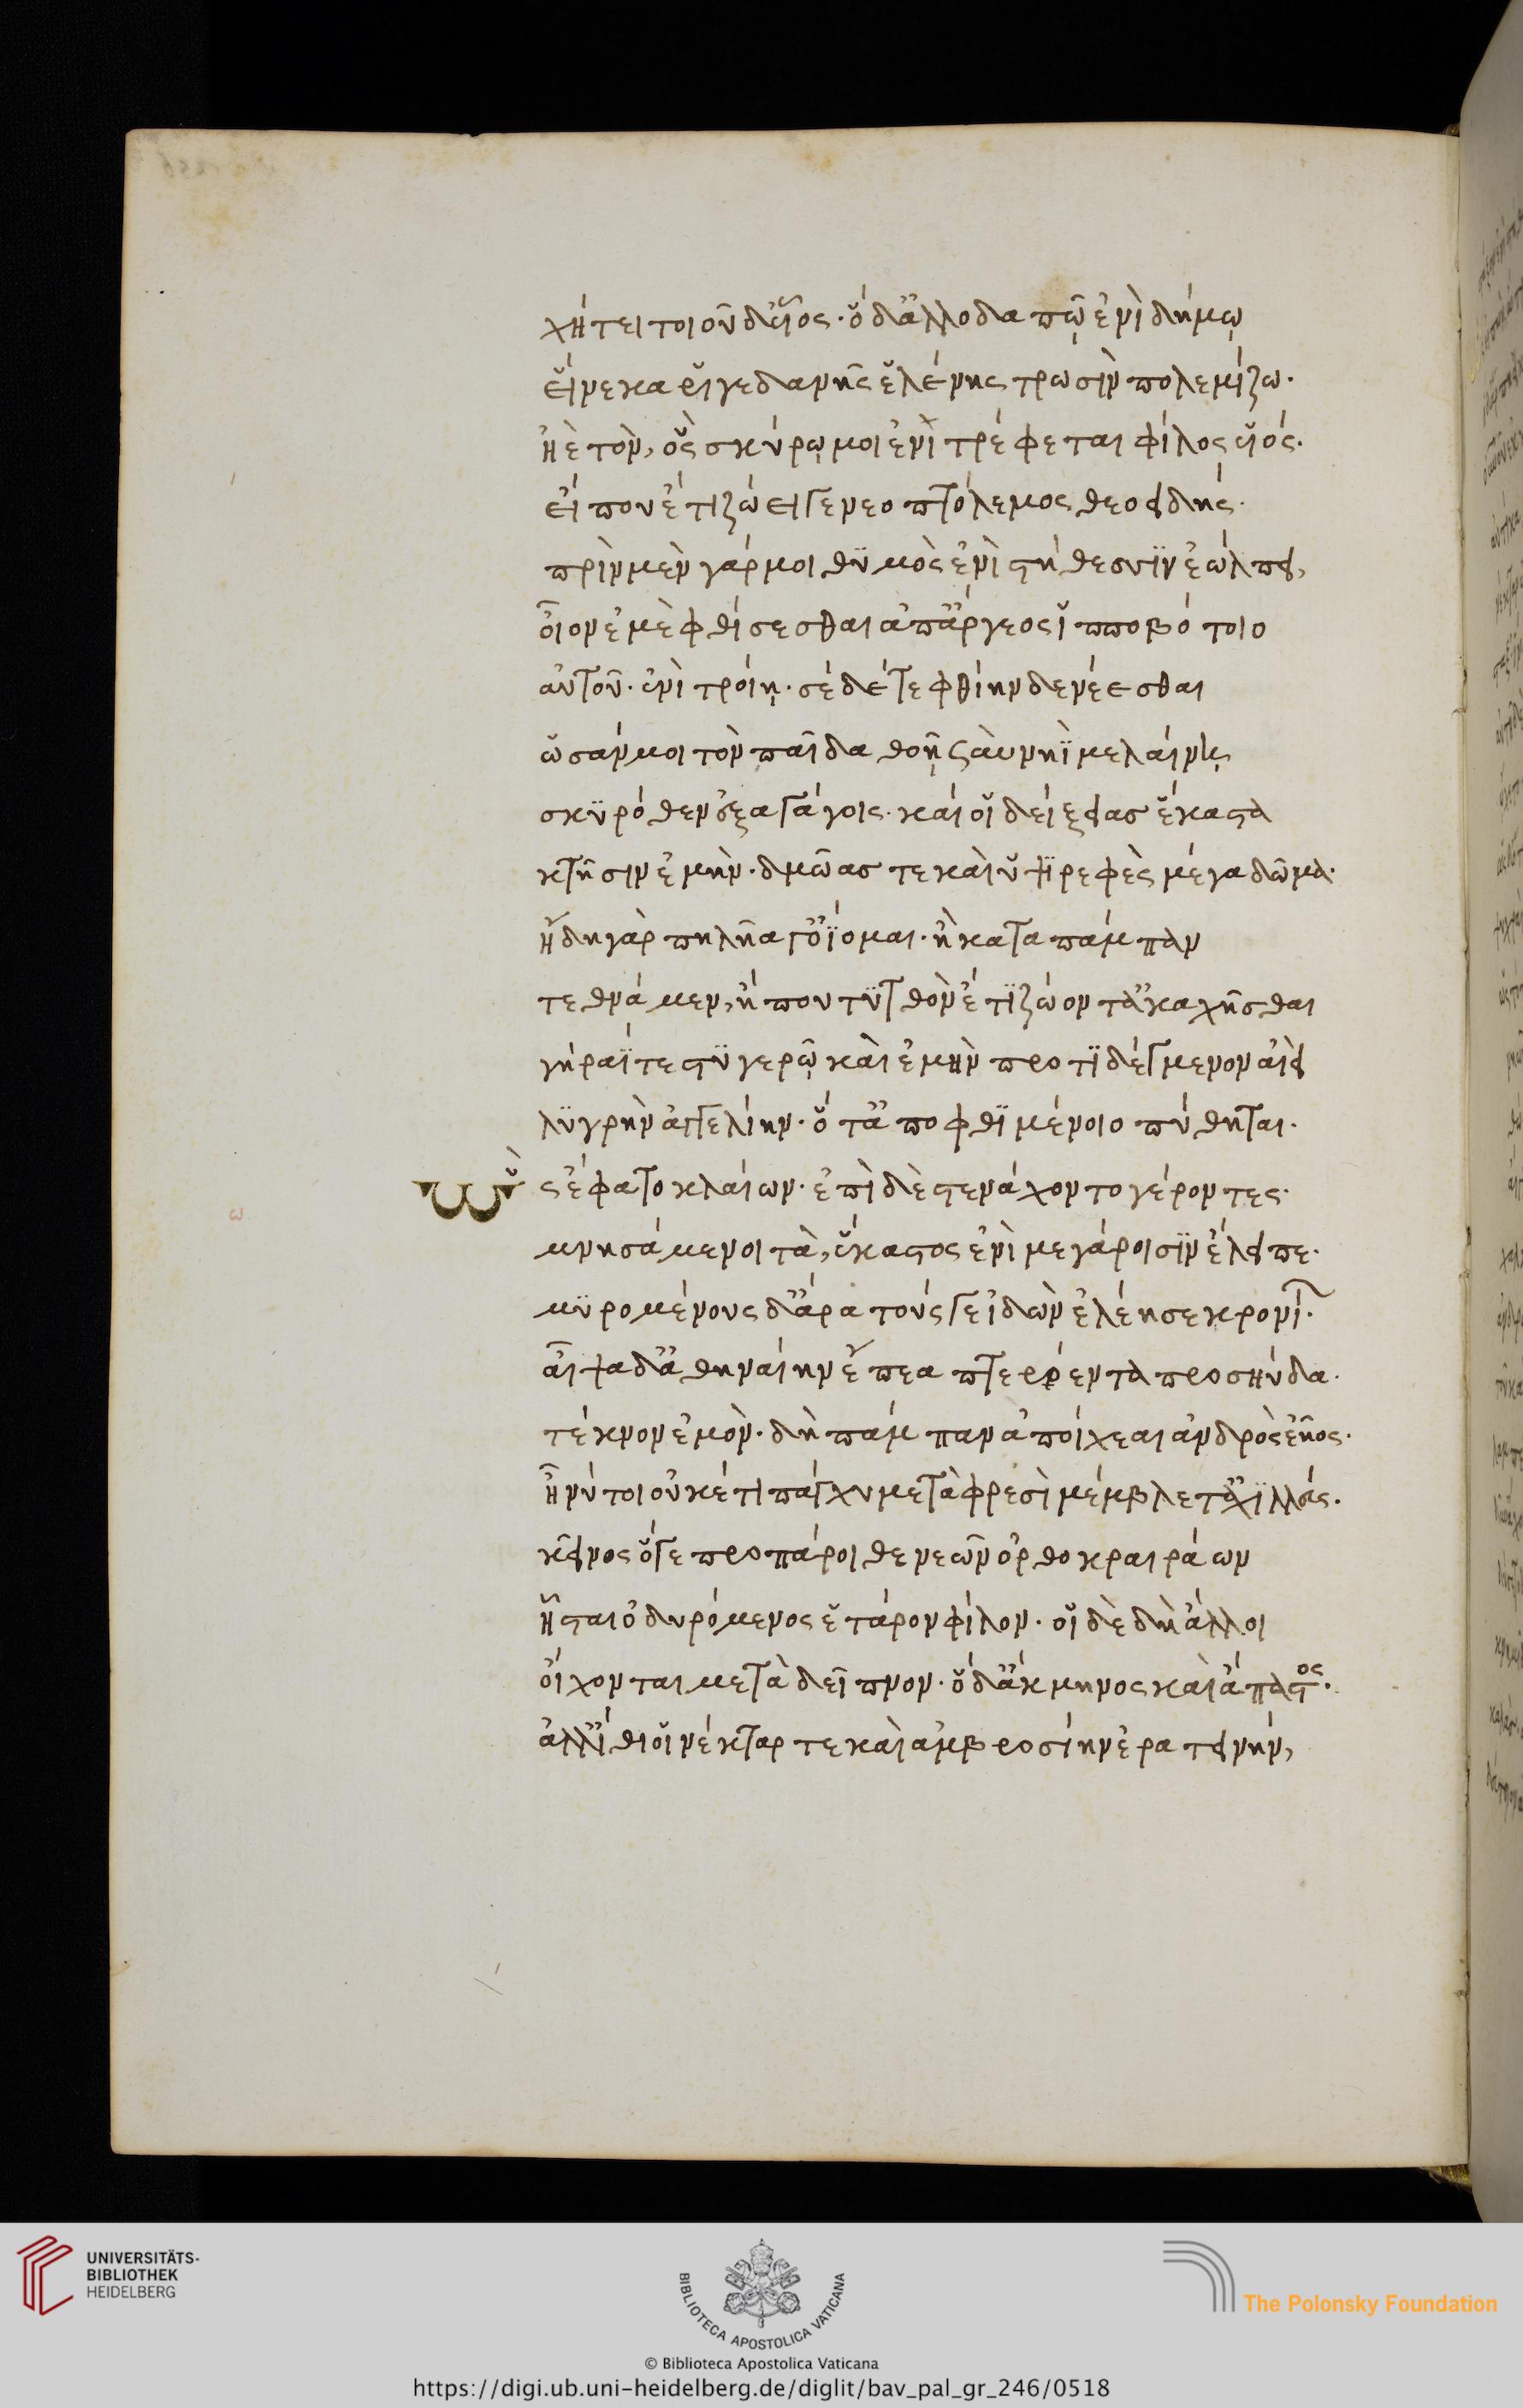 χήτει τοιοῦδ' υἷος· ὁ δ' ἀλλοδαπῷ ἐνὶ δήμῳ
εἵνεκα ῥιγεδανῆς ἑλένης τρωσὶν πολεμίζω.
ἠὲ τὸν, ὃς σκύρῳ μοι ἐνὶ τρέφεται φίλος υἱός.
εἴ που ἔτι ζώει γε νεοπτόλεμος θεοειδής.
πρὶν μὲν γάρ μοι θϋμὸς ἐνὶ στήθεσσϊν ἐώλπει,
οἶον ἐμὲ φθίσεσθαι ἀπ' ἄργεος ἱπποβότοιο
αὐτοῦ· ἐνὶ τροίῃ· σὲ δέ τε φθίην δενέεσθαι
ὡς ἄν μοι τὸν παῖδα θοῇ σὺν νηῒ μελαίνῃ
σκϋρόθεν ἐξαγάγοις· καί οἱ δείξειας ἕκαστα
κτῆσιν ἐμὴν· δμῶας τε καὶ ὑψηρεφὲς μέγα δῶμα.
ἤδη γὰρ πηλῆα γ' ὀΐομαι· ἢ κατα πάμπαν
τεθνάμεν, ἤ που τϋτθὸν ἔτϊ ζώοντ' ἀκαχῆσθαι
γήραΐ τε στϋγερῷ καὶ ἐμὴν ποτϊδέγμενον αἰεὶ
λϋγρὴν ἀγγελίην· ὅτ' ἀποφθϊμένοιο πύθηται.
Ὣς ἔφατο κλαίων· ἐπὶ δὲ στενάχοντο γέροντες.
μνησάμενοι τὰ, ἕκαστος ἐνὶ μεγάροισϊν ἔλειπε.
μϋρομένους δ' ἄρα τούς γε ἰδὼν ἐλέησε κρονί.
αἶψα δ' ἀθηναίην ἔπεα πτερόεντα προσηύδα.
τέκνον ἐμὸν· δὴ πάμπαν ἀποίχεαι ἀνδρὸς ἑῆος.
ἦ νύ τοι οὐκέτι πάγχυ μετὰ φρεσὶ μέμβλετ' ἀχϊλλεύς.
κεῖνος ὅ γε προπάροιθε νεῶν ὀρθοκραιράων
ἧσται ὀδυρόμενος ἕταρον φίλον· οἱ δὲ δὴ ἄλλοι
οἴχονται μετὰ δεῖπνον· ὁ δ' ἄκμηνος καὶ ἄπαστος.
ἀλλ' ἴθι οἱ νέκταρ τε καὶ ἀμβροσίην ἐρατεινήν,
UNIVERSITÄTS-
BIBLIOTHEK
HEIDELBERG
BIBLIOTECA APOSTOLICA VATICANA
The Polonsky Foundation
© Biblioteca Apostolica Vaticana
https://digi.ub.uni-heidelberg.de/diglit/bav_pal_gr_246/0518